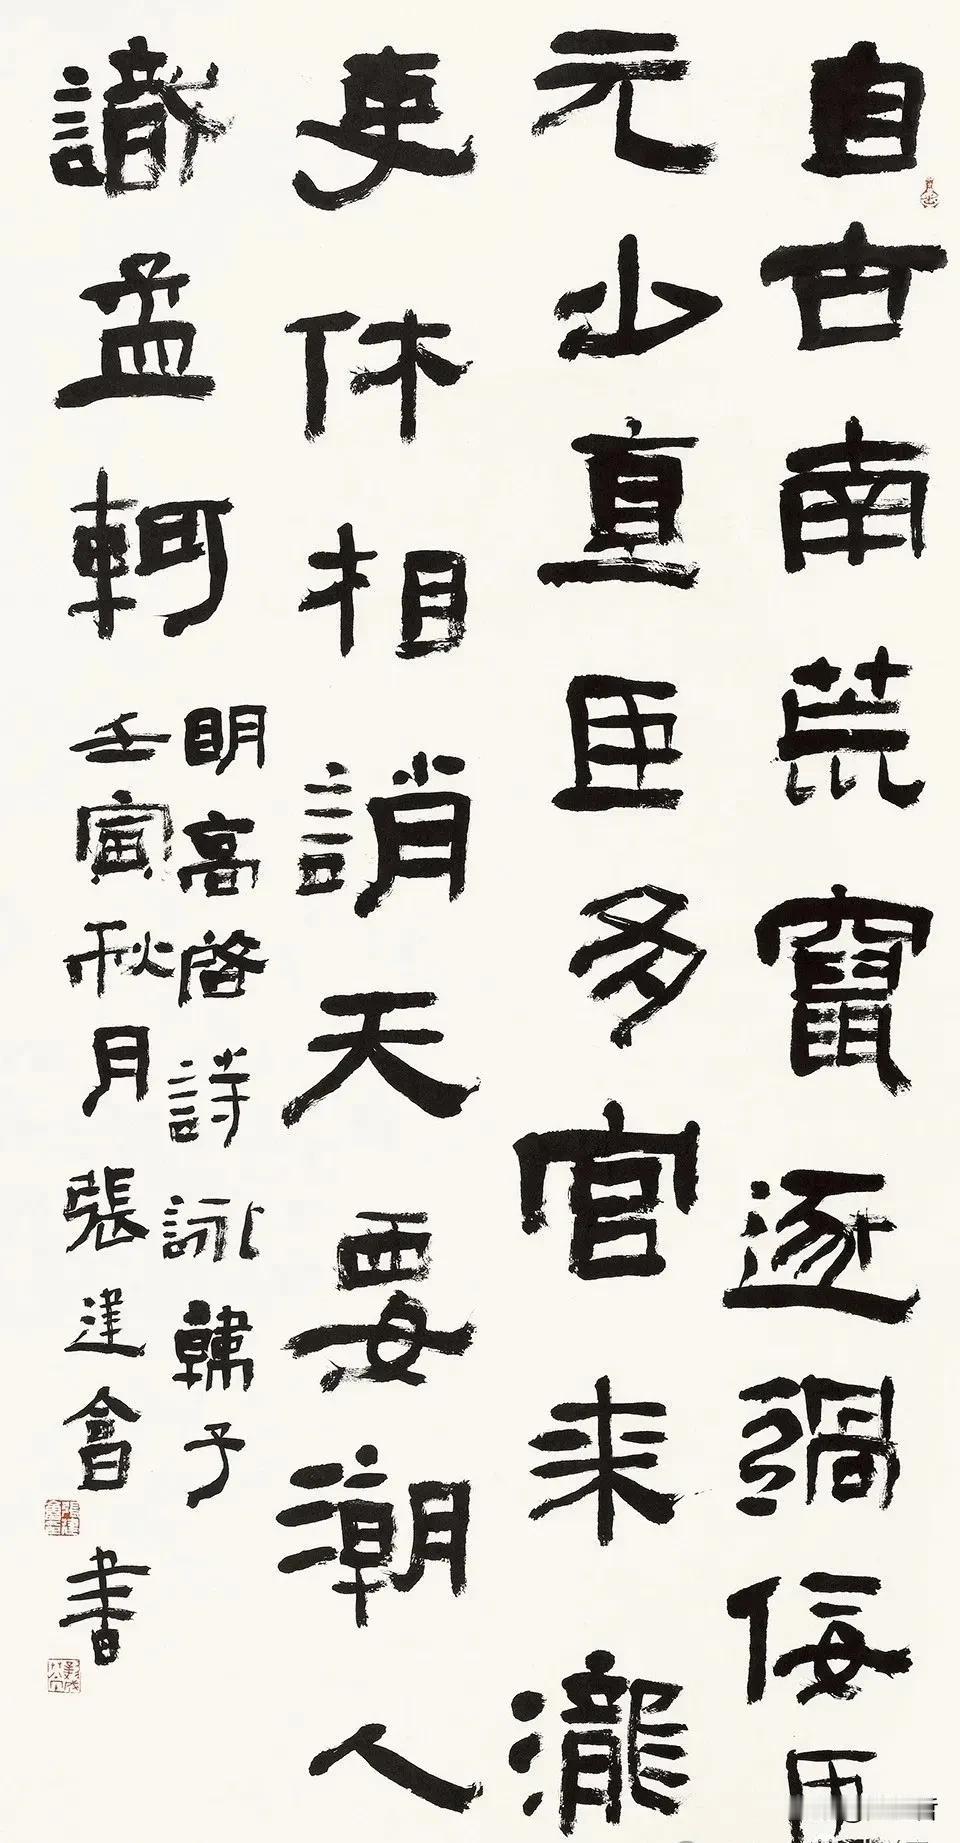 自古南荒竄逐過佞臣
元少直臣多官来瀧
吏休相誚天要潮人
識孟軻
明高啓詩詠韓子
壬寅秋月張建會書